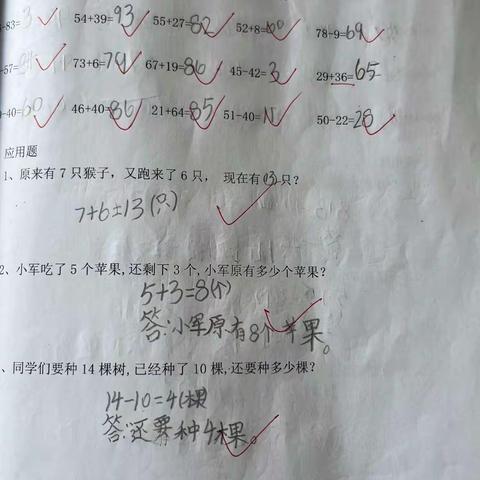 -83=3 54+39=93 55+27=82 52+8=60 78-9=69
-57= 73+6=79 67+19=86 45-42=3 29+36=65
-40=60 46+40=86 21+64=85 51-40=11 50-22=28
应用题
1、原来有7只猴子，又跑来了6只， 现在有13只？
7+6=13(只)
2、小军吃了5个苹果,还剩下3个,小军原有多少个苹果？
5+3=8(个)
答:小军原有8个苹果。
、同学们要种14棵树,已经种了10棵,还要种多少棵？
14-10=4(棵)
答:还要种4棵。